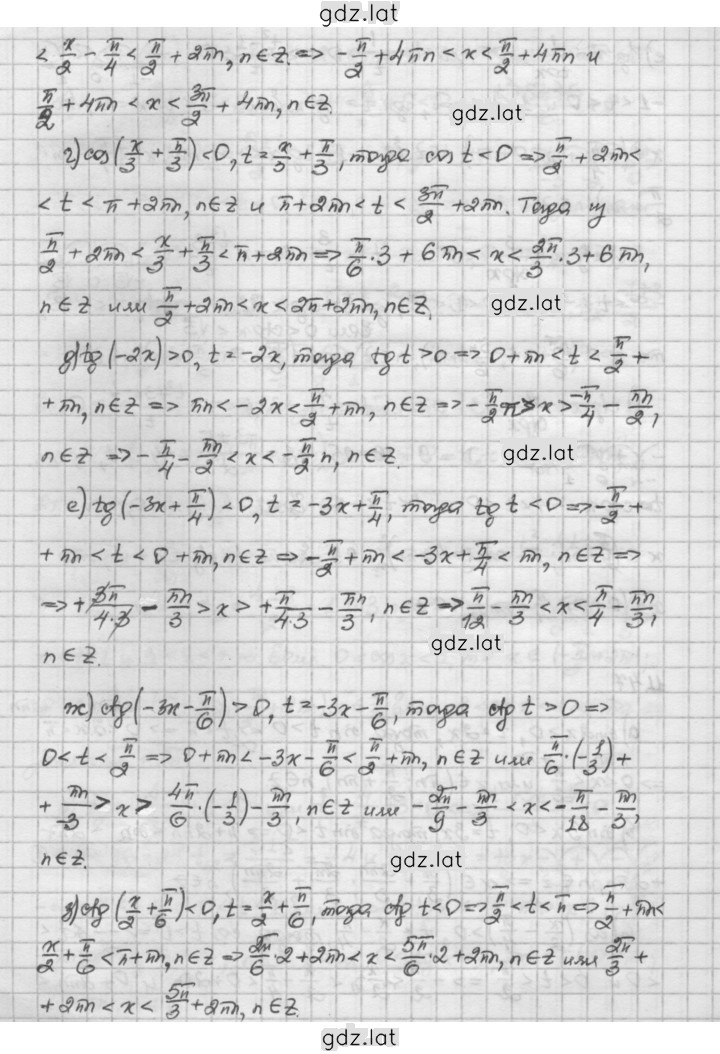 gdz.lat
< x/2 - π/4 < π/2 + 2πn, n∈Z. => -π/2 + 4πn < x < π/2 + 4πn и
π/2 + 4πn < x < 3π/2 + 4πn, n∈Z.
gdz.lat
г) cos(x/3 + π/3) < 0, t = x/3 + π/3, тогда cos t < 0 => π/2 + 2πn <
< t < π + 2πn, n∈Z и π + 2πn < t < 3π/2 + 2πn. Тогда из
π/2 + 2πn < x/3 + π/3 < π + 2πn => π/6 · 3 + 6πn < x < 2π/3 · 3 + 6πn,
n∈Z или π/2 + 2πn < x < 2π + 2πn, n∈Z.
gdz.lat
д) tg(-2x) > 0, t = -2x, тогда tg t > 0 => 0 + πn < t < π/2 +
+ πn, n∈Z => πn < -2x < π/2 + πn, n∈Z => -π/2 n > x > -π/4 - πn/2,
n∈Z => -π/4 - πn/2 < x < -π/2 n, n∈Z.
gdz.lat
е) tg(-3x + π/4) < 0, t = -3x + π/4, тогда tg t < 0 => -π/2 +
+ πn < t < 0 + πn, n∈Z => -π/2 + πn < -3x + π/4 < πn, n∈Z =>
=> + 3π/4·3 - πn/3 > x > + π/4·3 - πn/3, n∈Z => π/12 - πn/3 < x < π/4 - πn/3,
gdz.lat
n∈Z.
ж) ctg(-3x - π/6) > 0, t = -3x - π/6, тогда ctg t > 0 =>
0 < t < π/2 => 0 + πn < -3x - π/6 < π/2 + πn, n∈Z или π/6 · (-1/3) +
+ πn/-3 > x > 4π/6 · (-1/3) - πn/3, n∈Z или -2π/9 - πn/3 < x < -π/18 - πn/3,
n∈Z.
gdz.lat
з) ctg(x/2 + π/6) < 0, t = x/2 + π/6, тогда ctg t < 0 => π/2 < t < π => π/2 + πn <
x/2 + π/6 < π + πn, n∈Z => 2π/6 · 2 + 2πn < x < 5π/6 · 2 + 2πn, n∈Z или 2π/3 +
+ 2πn < x < 5π/3 + 2πn, n∈Z.
gdz.lat